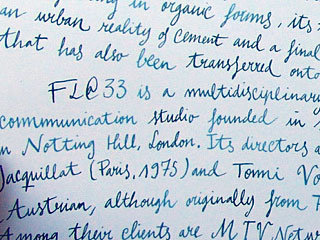 in organic forms, its
an urban reality of cement and a final
that has also been transferred onto
FL@33 is a multidisciplinary
communication studio founded in
in Notting Hill, London. Its directors a
Jacquillat (Paris, 1975) and Tommi Vo
Austrian, although originally from F
Among their clients are MTV Netw